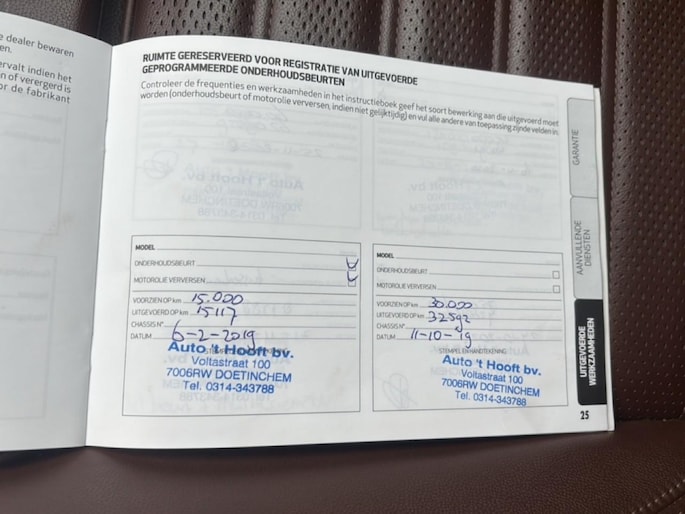 e dealer bewaren
en.
ervalt indien het
n of verergerd is
or de fabrikant
RUIMTE GERESERVEERD VOOR REGISTRATIE VAN UITGEVOERDE
GEPROGRAMMEERDE ONDERHOUDSBEURTEN
Controleer de frequenties en werkzaamheden in het instructieboek geef het soort bewerking aan die uitgevoerd moet
worden (onderhoudsbeurt of motorolie verversen, indien niet gelijktijdig) en vul alle andere van toepassing zijnde velden in.
MODEL
ONDERHOUDSBEURT
MOTOROLIE VERVERSEN
VOORZIEN OP km 15.000
UITGEVOERD OP km 15117
CHASSIS N°
DATUM 6-2-2019
Auto 't Hooft bv.
Voltastraat 100
7006RW DOETINCHEM
Tel. 0314-343788
MODEL
ONDERHOUDSBEURT
MOTOROLIE VERVERSEN
VOORZIEN OP km 30.000
UITGEVOERD OP km 32592
CHASSIS N°
DATUM 11-10-19
STEMPEL EN HANDTEKENING
Auto 't Hooft bv.
Voltastraat 100
7006RW DOETINCHEM
Tel. 0314-343788
GARANTIE
AANVULLENDE
DIENSTEN
UITGEVOERDE
WERKZAAMHEDEN
25